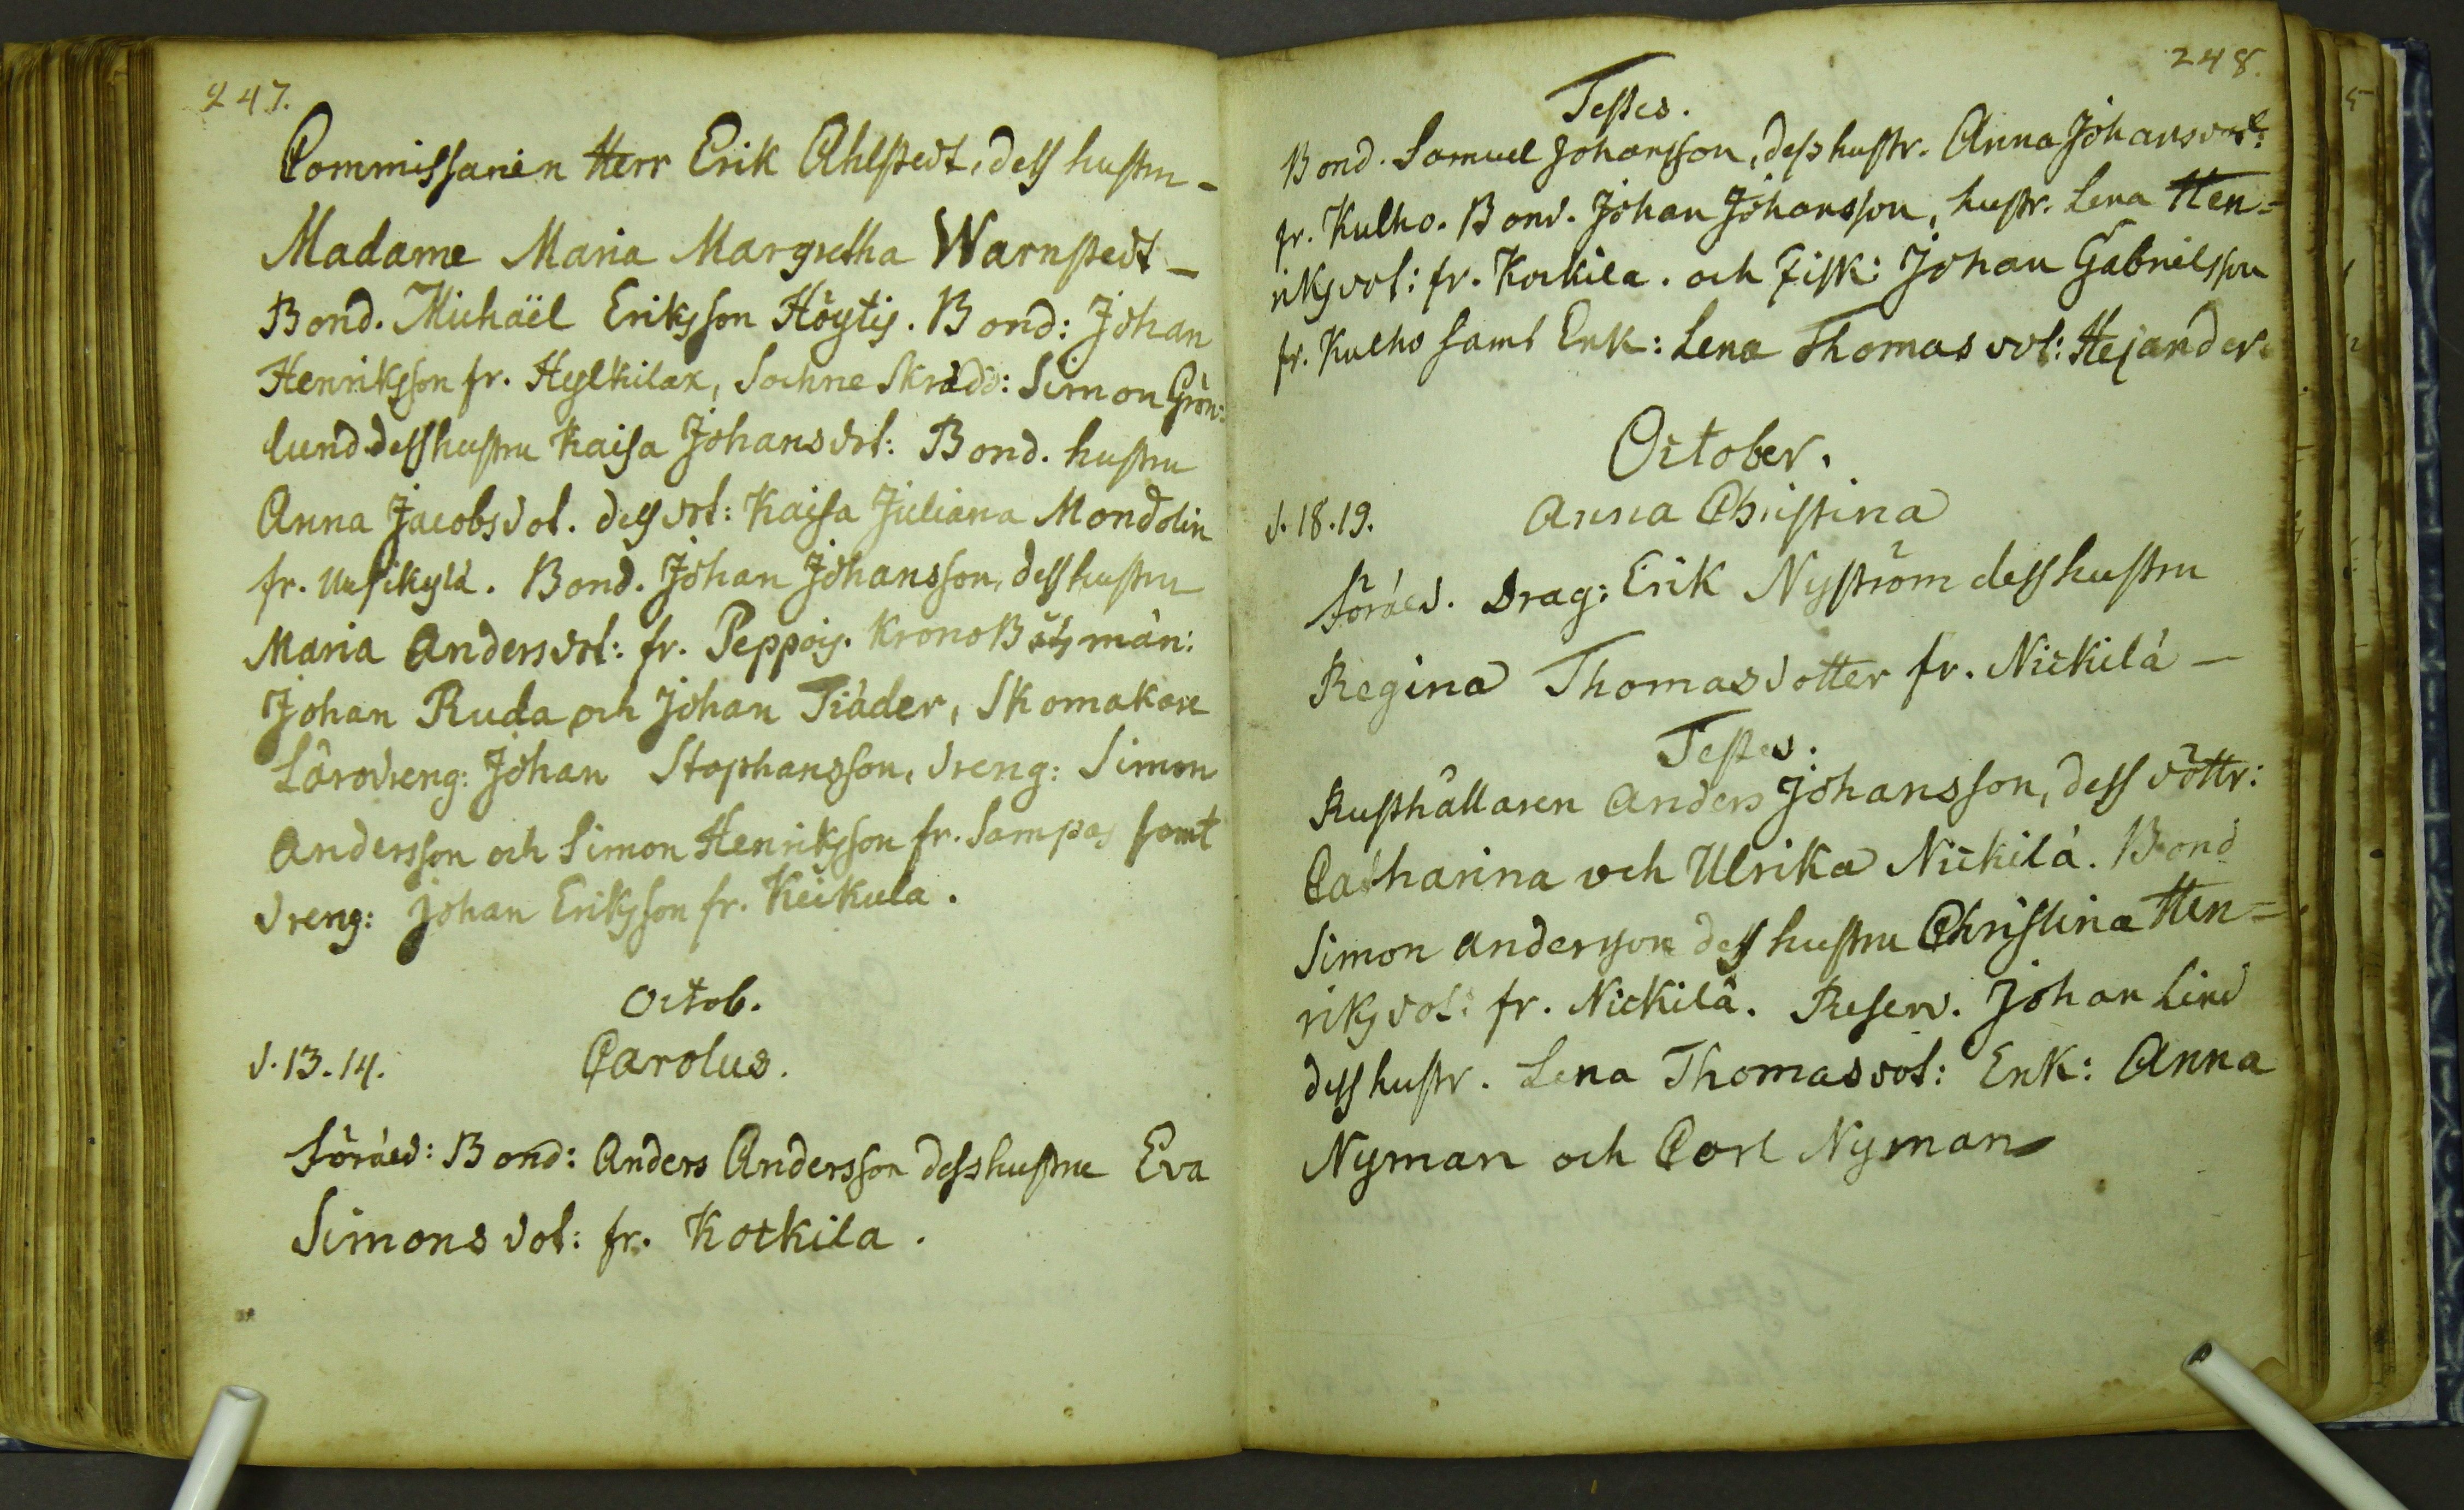 247.
Commissarien Herr Erik Ahlstedt, dess hustru -
Madame Maria Margretha Warnstedt -
Bond. Michaël Eriksson Höytis. Bond: Johan
Henriksson fr. Hylkilax, Sochne Skrädd: Simon Grön=
lund dess hustru Kaisa Johansdot: Bond. hustru
Anna Jacobsdot. dess dot: Kaisa Juliana Mondolin
fr. Uusikylä. Bond. Johan Johansson, dess hustru
Maria Andersdot: fr. Peppois. Krono Båtsmän:
Johan Ruda och Johan Tiäder, Skomakare
Lärodreng: Johan Stephansson, dreng: Simon
Andersson och Simon Henriksson fr. Sampas samt
dreng: Johan Eriksson fr. Keikula.
Octob.
d. 13. 14. Carolus.
Föräld: Bond: Anders Andersson dess hustru Eva
Simonsdot: fr. Kotkila.
248.
Testes.
Bond. Samuel Johansson, dess hustr. Anna Johansdot:
fr. Kulho. Bond. Johan Johansson, hustr. Lena Hen=
riksdot: fr. Kotkila. och Fisk: Johan Gabrielsson
fr. Kulho samt Enk: Lena Thomasdot: Hejander.
October.
d. 18. 19. Anna Christina
Föräld. Drag: Erik Nyström dess hustru
Regina Thomasdotter fr. Nickilä -
Testes:
Rusthållaren Anders Johansson, dess döttr:
Catharina och Ulrika Nickilä. Bond
Simon Andersson dess hustru Christina Hen=
riksdot: fr. Nickilä. Reserv. Johan Lind
dess hustr. Lena Thomasdot: Enk: Anna
Nyman och Carl Nyman